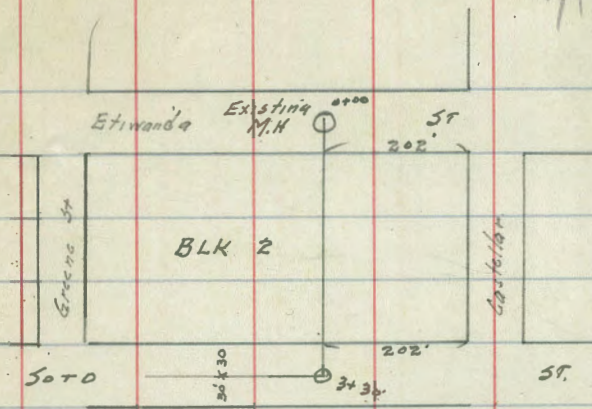 0+00
Etiwanda Existing M.H ST
202'
Greene St
BLK 2
Castellar
202'
SOTO 30' x 30 3+30 ST.